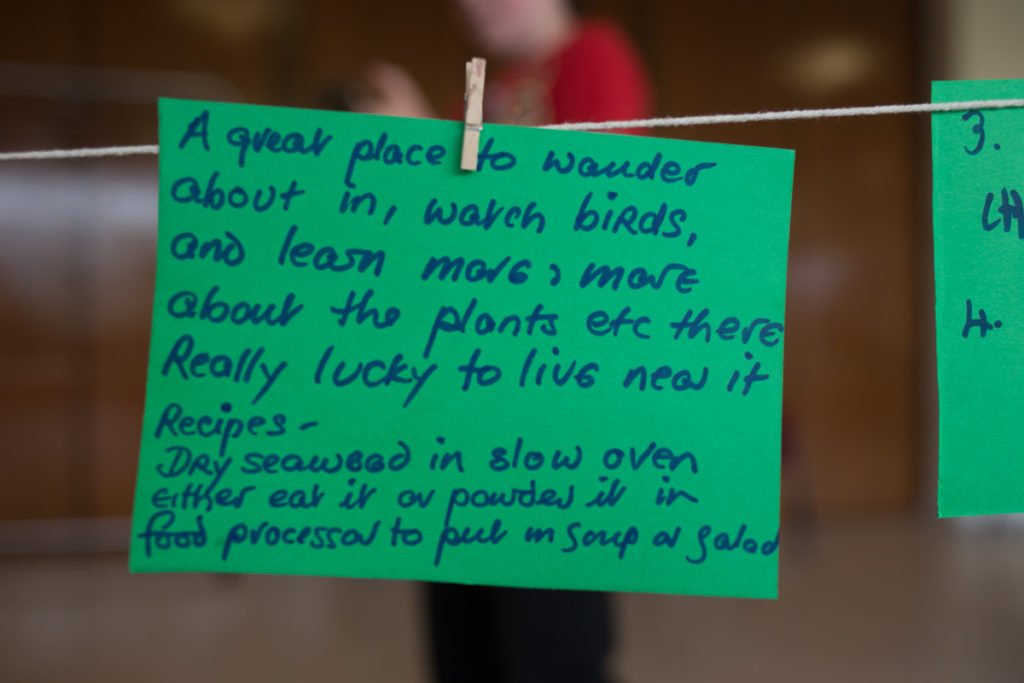 A great place to wander
about in, watch birds,
and learn more, more
about the plants etc there
Really lucky to live near it
Recipes -
Dry seaweed in slow oven
either eat it or powder it in
food processor to put in soup or salad
3.
4.